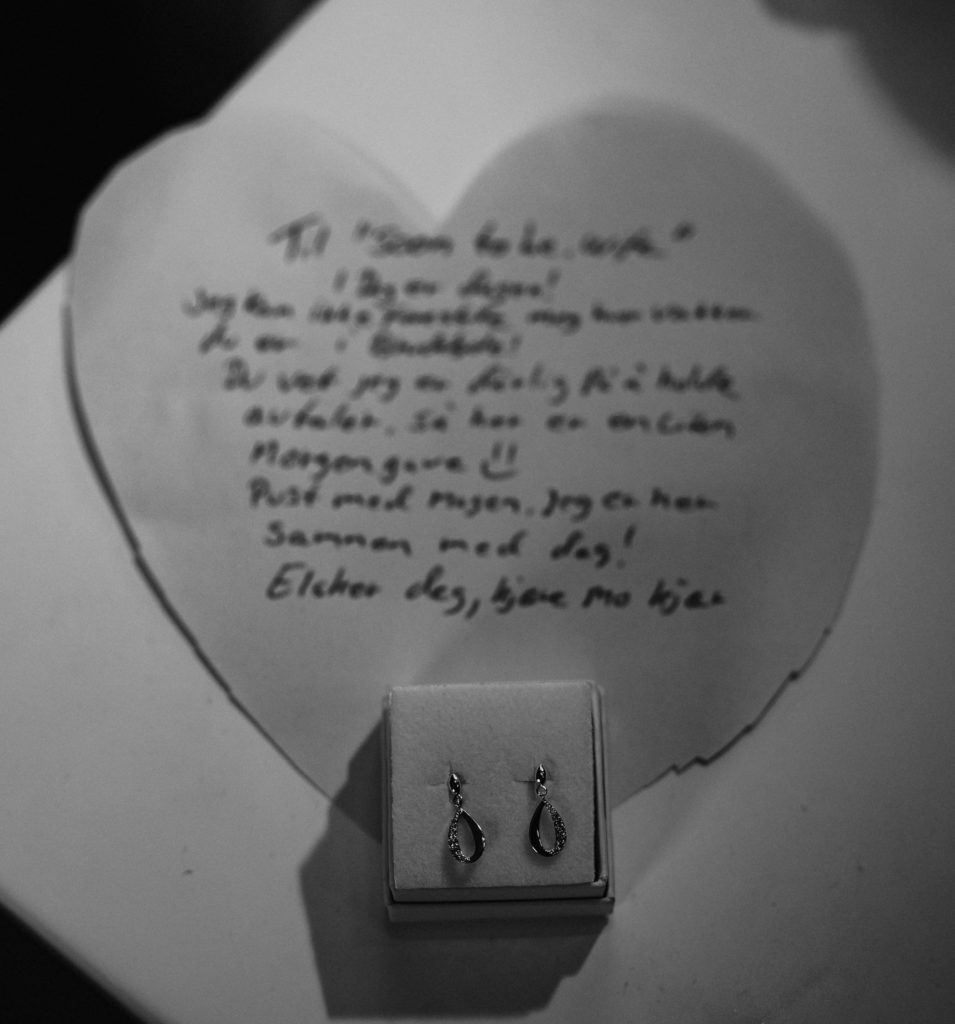 Til "Soon to be. wife"
! Dag er dagen!
Jeg kan ikke forestille meg hvor vakker
du er i
Du vet jeg er dårlig på å holde
avtaler, så her er en liten
Morgengave !!
Pust med magen, jeg er her
Sammen med deg!
Elsker deg, kjære mo kjær